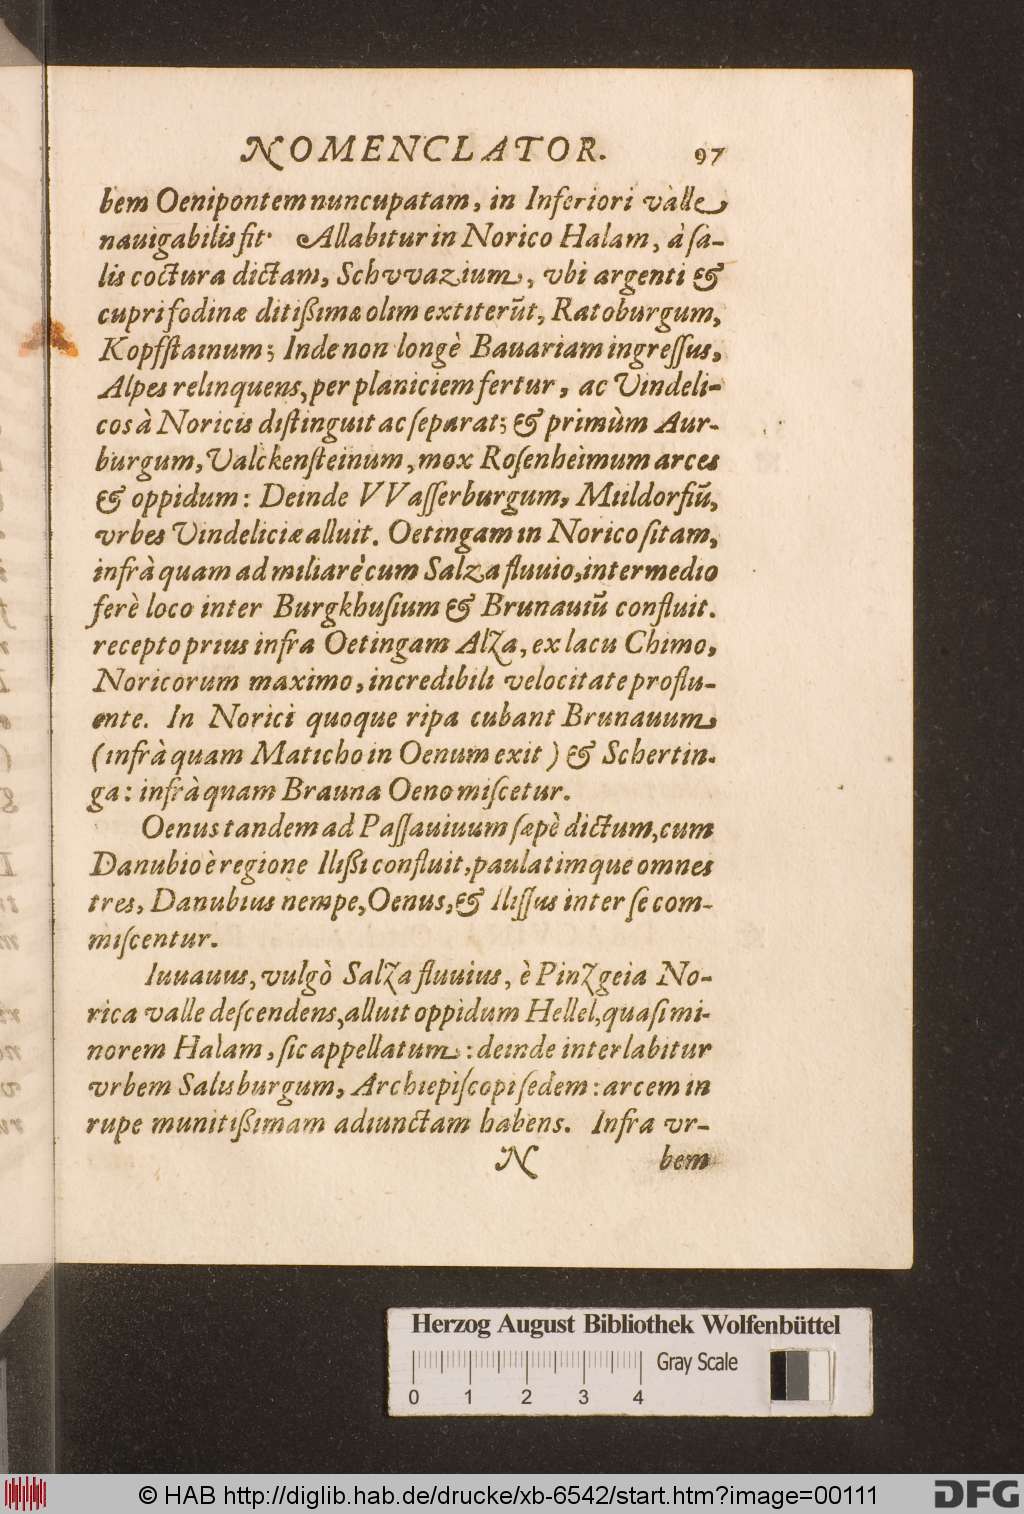 NOMENCLATOR. 97
bem Oenipontem nuncupatam, in Inferiori valle
nauigabilis fit. Allabitur in Norico Halam, à ſa-
lis coctura dictam, Schvvazium, vbi argenti &
cuprifodinæ ditißimæ olim extiterũt, Ratoburgum,
Kopfſtainum; Inde non longè Bauariam ingreſſus,
Alpes relinquens, per planiciem fertur, ac Vindeli-
cos à Noricis diſtinguit ac ſeparat; & primùm Aur-
burgum, Valckenſteinum, mox Roſenheimum arces
& oppidum: Deinde VVaſſerburgum, Muldorfiũ,
vrbes Vindeliciæ alluit. Oetingam in Norico ſitam,
infrà quam ad miliarè cum Salza fluuio, intermedio
ferè loco inter Burgkhuſium & Brunauiũ confluit.
recepto prius infra Oetingam Alza, ex lacu Chimo,
Noricorum maximo, incredibili velocitate proflu-
ente. In Norici quoque ripa cubant Brunauum
(infrà quam Maticho in Oenum exit) & Schertin-
ga: infrà quam Brauna Oeno miſcetur.
Oenus tandem ad Paſſauiuum ſæpè dictum, cum
Danubio è regione Ilißi confluit, paulatimque omnes
tres, Danubius nempe, Oenus, & Iliſſus inter ſe com-
miſcentur.
Iuuauus, vulgò Salza fluuius, è Pinzgeia No-
rica valle deſcendens, alluit oppidum Hellel, quaſi mi-
norem Halam, ſic appellatum: deinde interlabitur
vrbem Salisburgum, Archiepiſcopi ſedem: arcem in
rupe munitißimam adiunctam habens. Infra vr-
N bem
Herzog August Bibliothek Wolfenbüttel
Gray Scale
0 1 2 3 4
© HAB http://diglib.hab.de/drucke/xb-6542/start.htm?image=00111
DFG